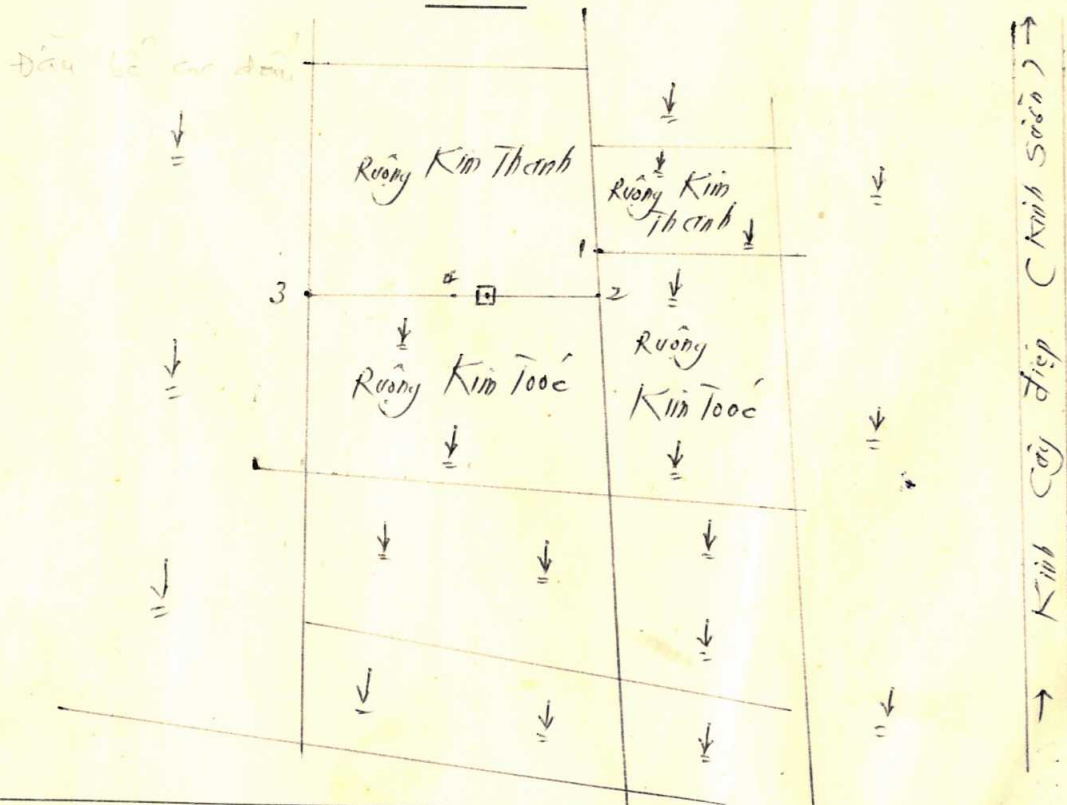 Ruộng Kim Thanh
Ruộng Kim
Thanh
1
3
2
Ruộng Kim Toóc
Ruộng
Kim Toóc
→ Kinh Cây điệp (Kinh Sườn) →